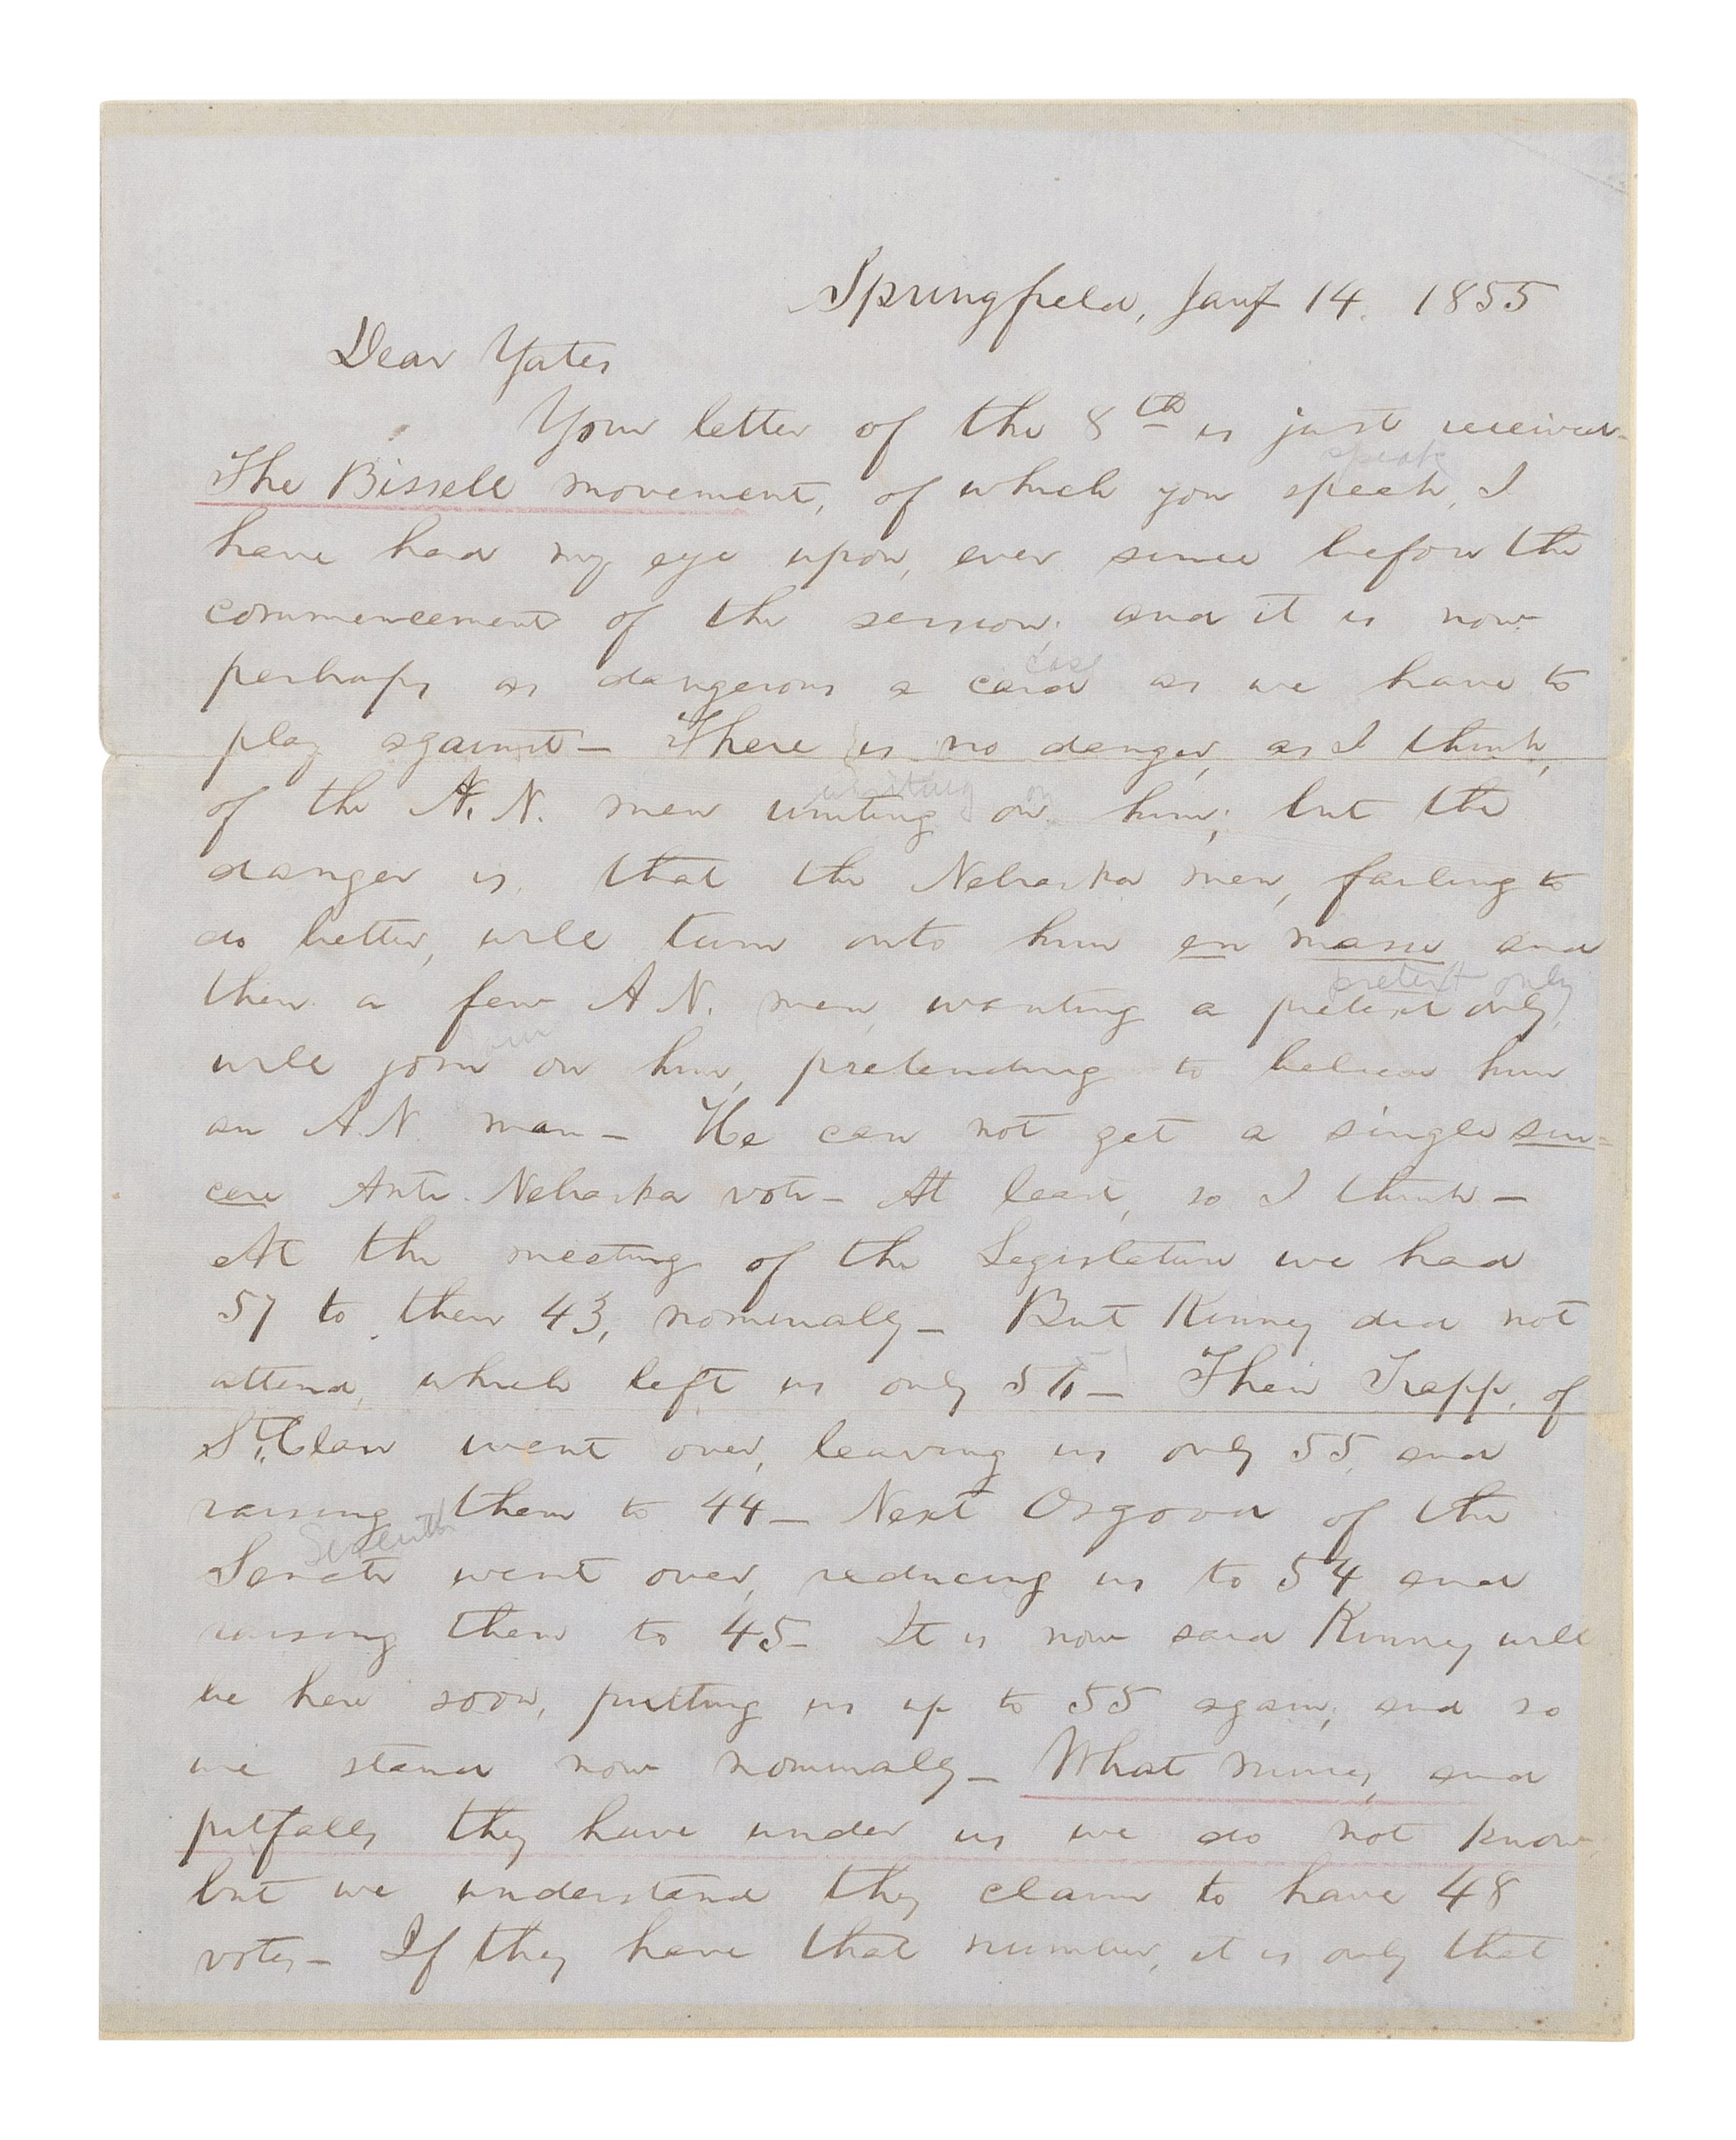 Springfield, Jany 14. 1855
Dear Yates
Your letter of the 8th is just received-
speak
The Bissell movement, of which you speak, I
have had my eye upon, ever since before the
commencement of the session. and it is now
case
perhaps as dangerous a card as we have to
play against — There is no danger, as I think,
uniting on
of the A. N. men uniting on him; but the
danger is that the Nebraska men, failing to
do better, will turn onto him en masse, and
pretext only
then a few A N. men, wanting a pretext only,
join
will join on him, pretending to believe him
an A.N. man — He can not get a single sin=
cere Anti-Nebraska vote — At least, so I think —
At the meeting of the Legislature we had
57 to their 43, nominally — But Kinney did not
attend, which left us only 56 — Then Trapp, of
St. Clair went over, leaving us only 55, and
raising them to 44 — Next Osgood of the
Seventh
Senate went over, reducing us to 54 and
raising them to 45 — It is now said Kinney will
be here soon, putting us up to 55 again; and so
we stand now nominally — What mines, and
pitfalls they have under us we do not know
but we understand they claim to have 48
votes — If they have that number, it is only that